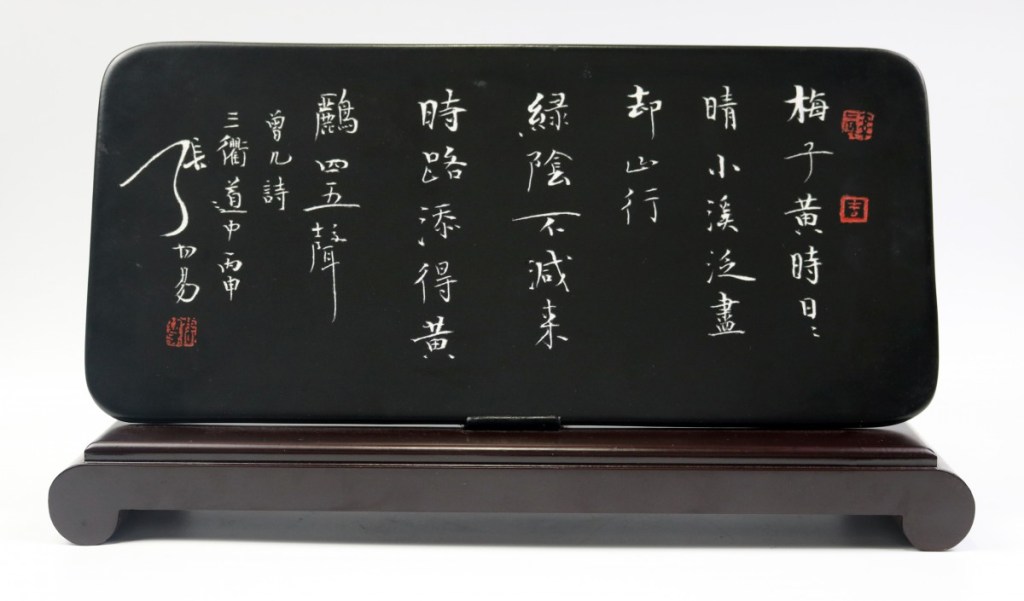 梅子黃時日〻
晴小溪泛盡
却山行
綠陰不減来
時路添得黃
鸝四五聲
曾几詩
三衢道中丙申
張
吉